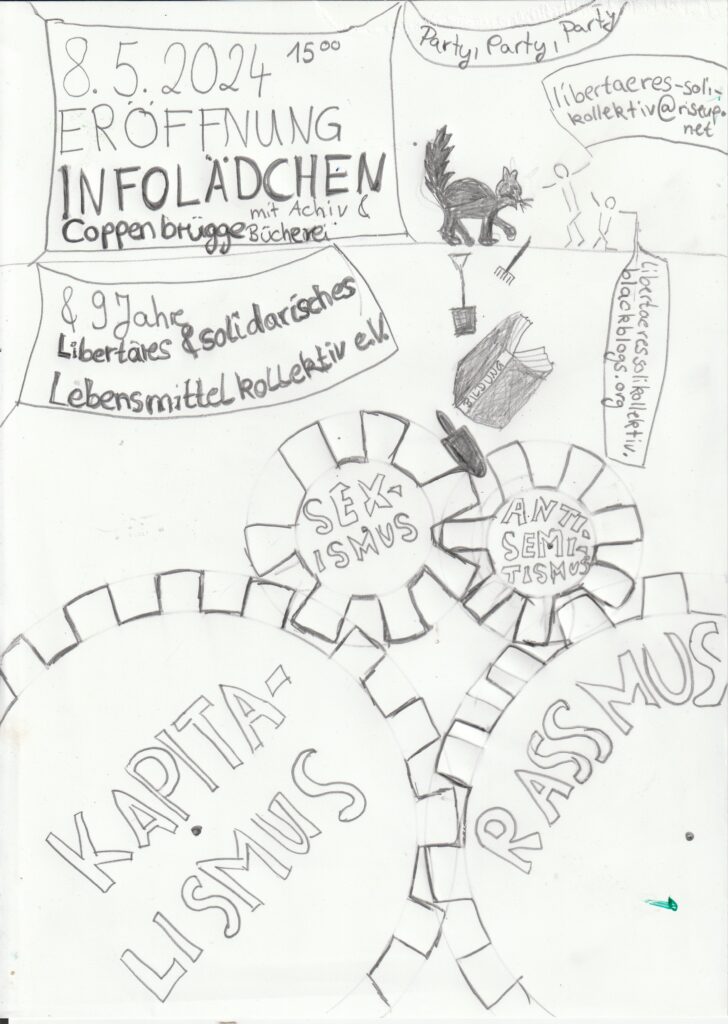 8.5.2024 15⁰⁰
ERÖFFNUNG
INFOLÄDCHEN
mit Achiv &
Coppenbrügge Bücherei
Party, Party, Party
libertaeres-soli-
kollektiv@riseup.
net
& 9 Jahre
Libertäres & solidarisches
Lebensmittelkollektiv e.V.
libertaeressolikollektiv.
blackblogs.org
BILDUNG
SEX-
ISMUS
ANTI-
SEMI-
TISMUS
KAPITA-
LISMUS
RASSMUS